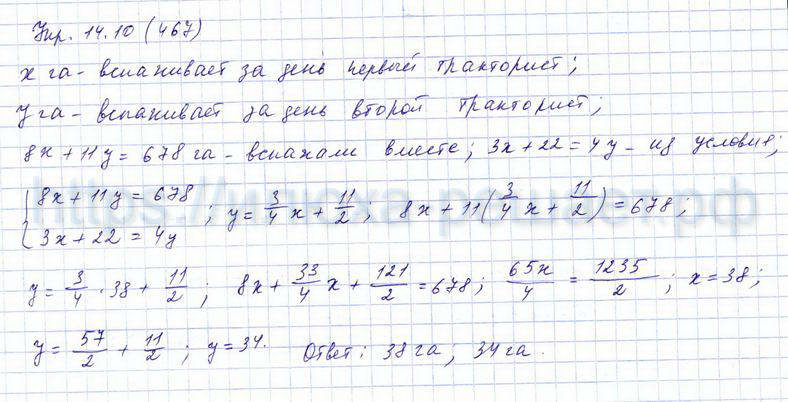 Упр. 14.10 (467)
x га - вспахивает за день первый тракторист;
y га - вспахивает за день второй тракторист;
8x + 11y = 678 га - вспахали вместе; 3x + 22 = 4y - из условия;
{8x + 11y = 678
3x + 22 = 4y ; y = 3/4 x + 11/2 ; 8x + 11(3/4 x + 11/2) = 678;
y = 3/4 · 38 + 11/2 ; 8x + 33/4 x + 121/2 = 678; 65x/4 = 1235/2 ; x = 38;
y = 57/2 + 11/2 ; y = 34. Ответ: 38 га; 34 га.
https://илюха-решает.рф